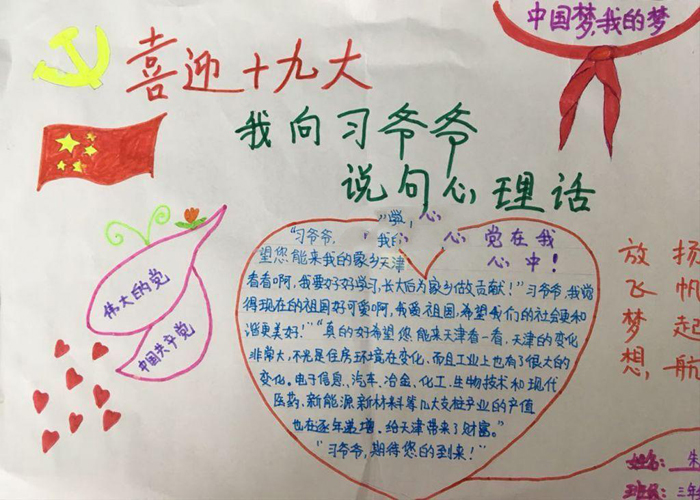 中国梦,我的梦
喜迎十九大
我向习爷爷
说句心理话
学,心
心党在我
心中!
"习爷爷,
望您能来我的家乡天津
看看啊,我要好好学习,长大后为家乡做贡献!"习爷爷,我觉
得现在的祖国好可爱啊,我爱祖国,希望我们的社会更和
谐更美好!""真的好希望您能来天津看一看,天津的变化
非常大,不光是住房环境在变化,而且工业上也有了很大的
变化。电子信息、汽车、冶金、化工、生物技术和现代
医药、新能源新材料等几大支柱产业的产值
也在逐年递增、给天津带来了财富。"
"习爷爷,期待您的到来!"
伟大的党
中国共产党
放飞梦想,
扬帆起航
姓名:朱
班级:三年